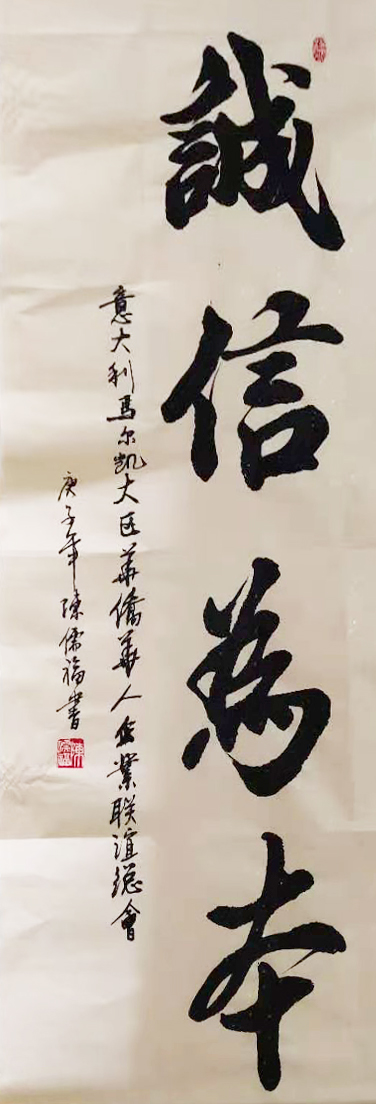 誠信為本
意大利馬尔凱大区華僑華人企業联誼總會
庚子年陳儒福書